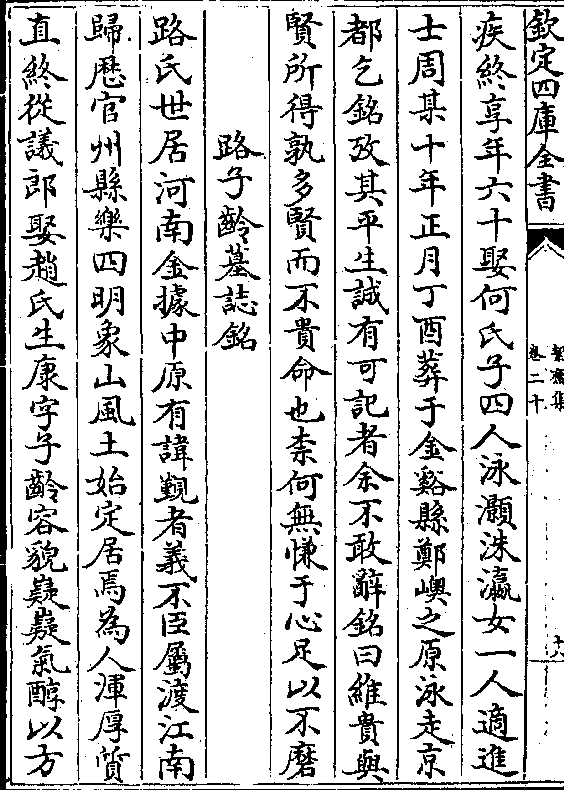 欽定四庫全書
絜齋集
卷二十
十八
疾終享年六十娶何氏子四人泳灝洙瀛女一人適進
士周某十年正月丁酉葬于金谿縣鄭嶼之原泳走京
都乞銘攷其平生誠有可記者余不敢辭銘曰維貴與
賢所得孰多賢而不貴命也柰何無慊于心足以不磨
路子齡墓誌銘
路氏世居河南金據中原有諱覲者義不臣屬渡江南
歸歴官州縣樂四明象山風土始定居焉為人渾厚質
直終從議郎娶趙氏生康字子齡容貌嶷嶷氣醇以方